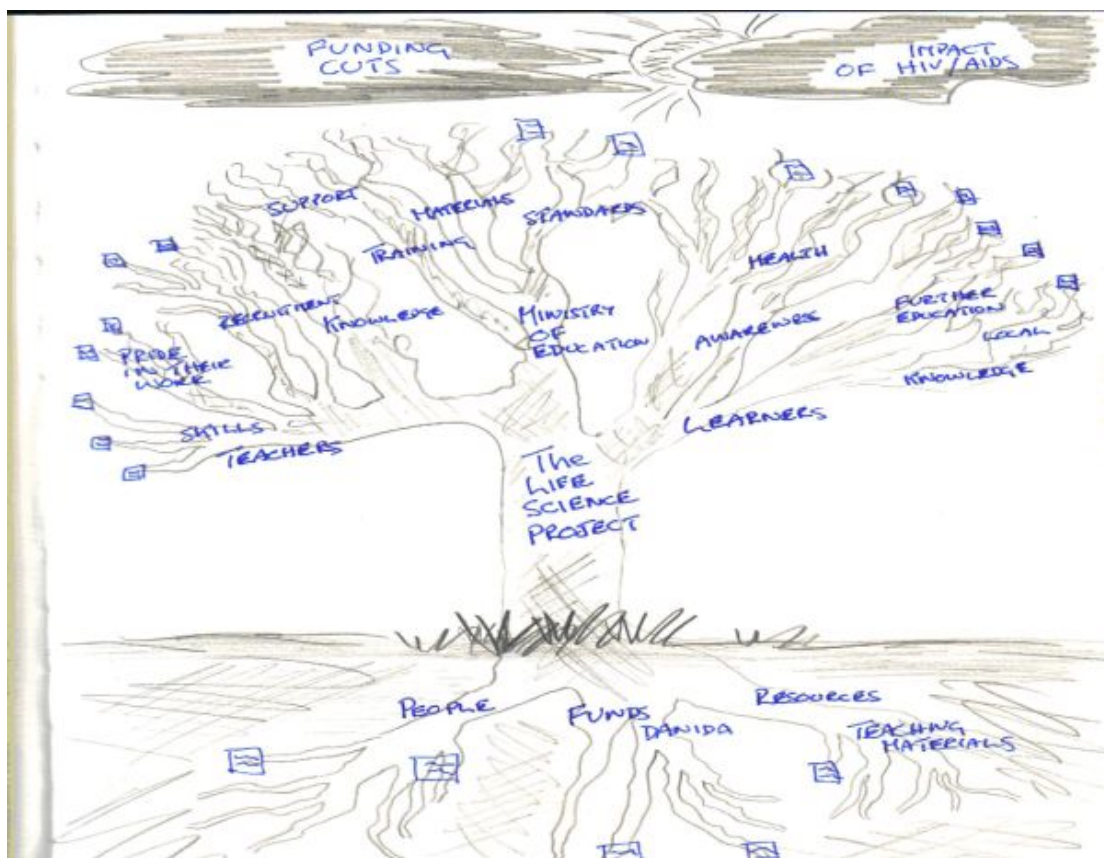 FUNDING
CUTS
IMPACT
OF HIV/AIDS
SUPPORT
MATERIALS
STANDARDS
TRAINING
HEALTH
RECRUITMENT
KNOWLEDGE
MINISTRY
OF
EDUCATION
AWARENESS
FURTHER
EDUCATION
LOCAL
KNOWLEDGE
PRIDE
IN THEIR
WORK
SKILLS
TEACHERS
LEARNERS
The
LIFE
SCIENCE
PROJECT
PEOPLE
FUNDS
DANIDA
RESOURCES
TEACHING
MATERIALS